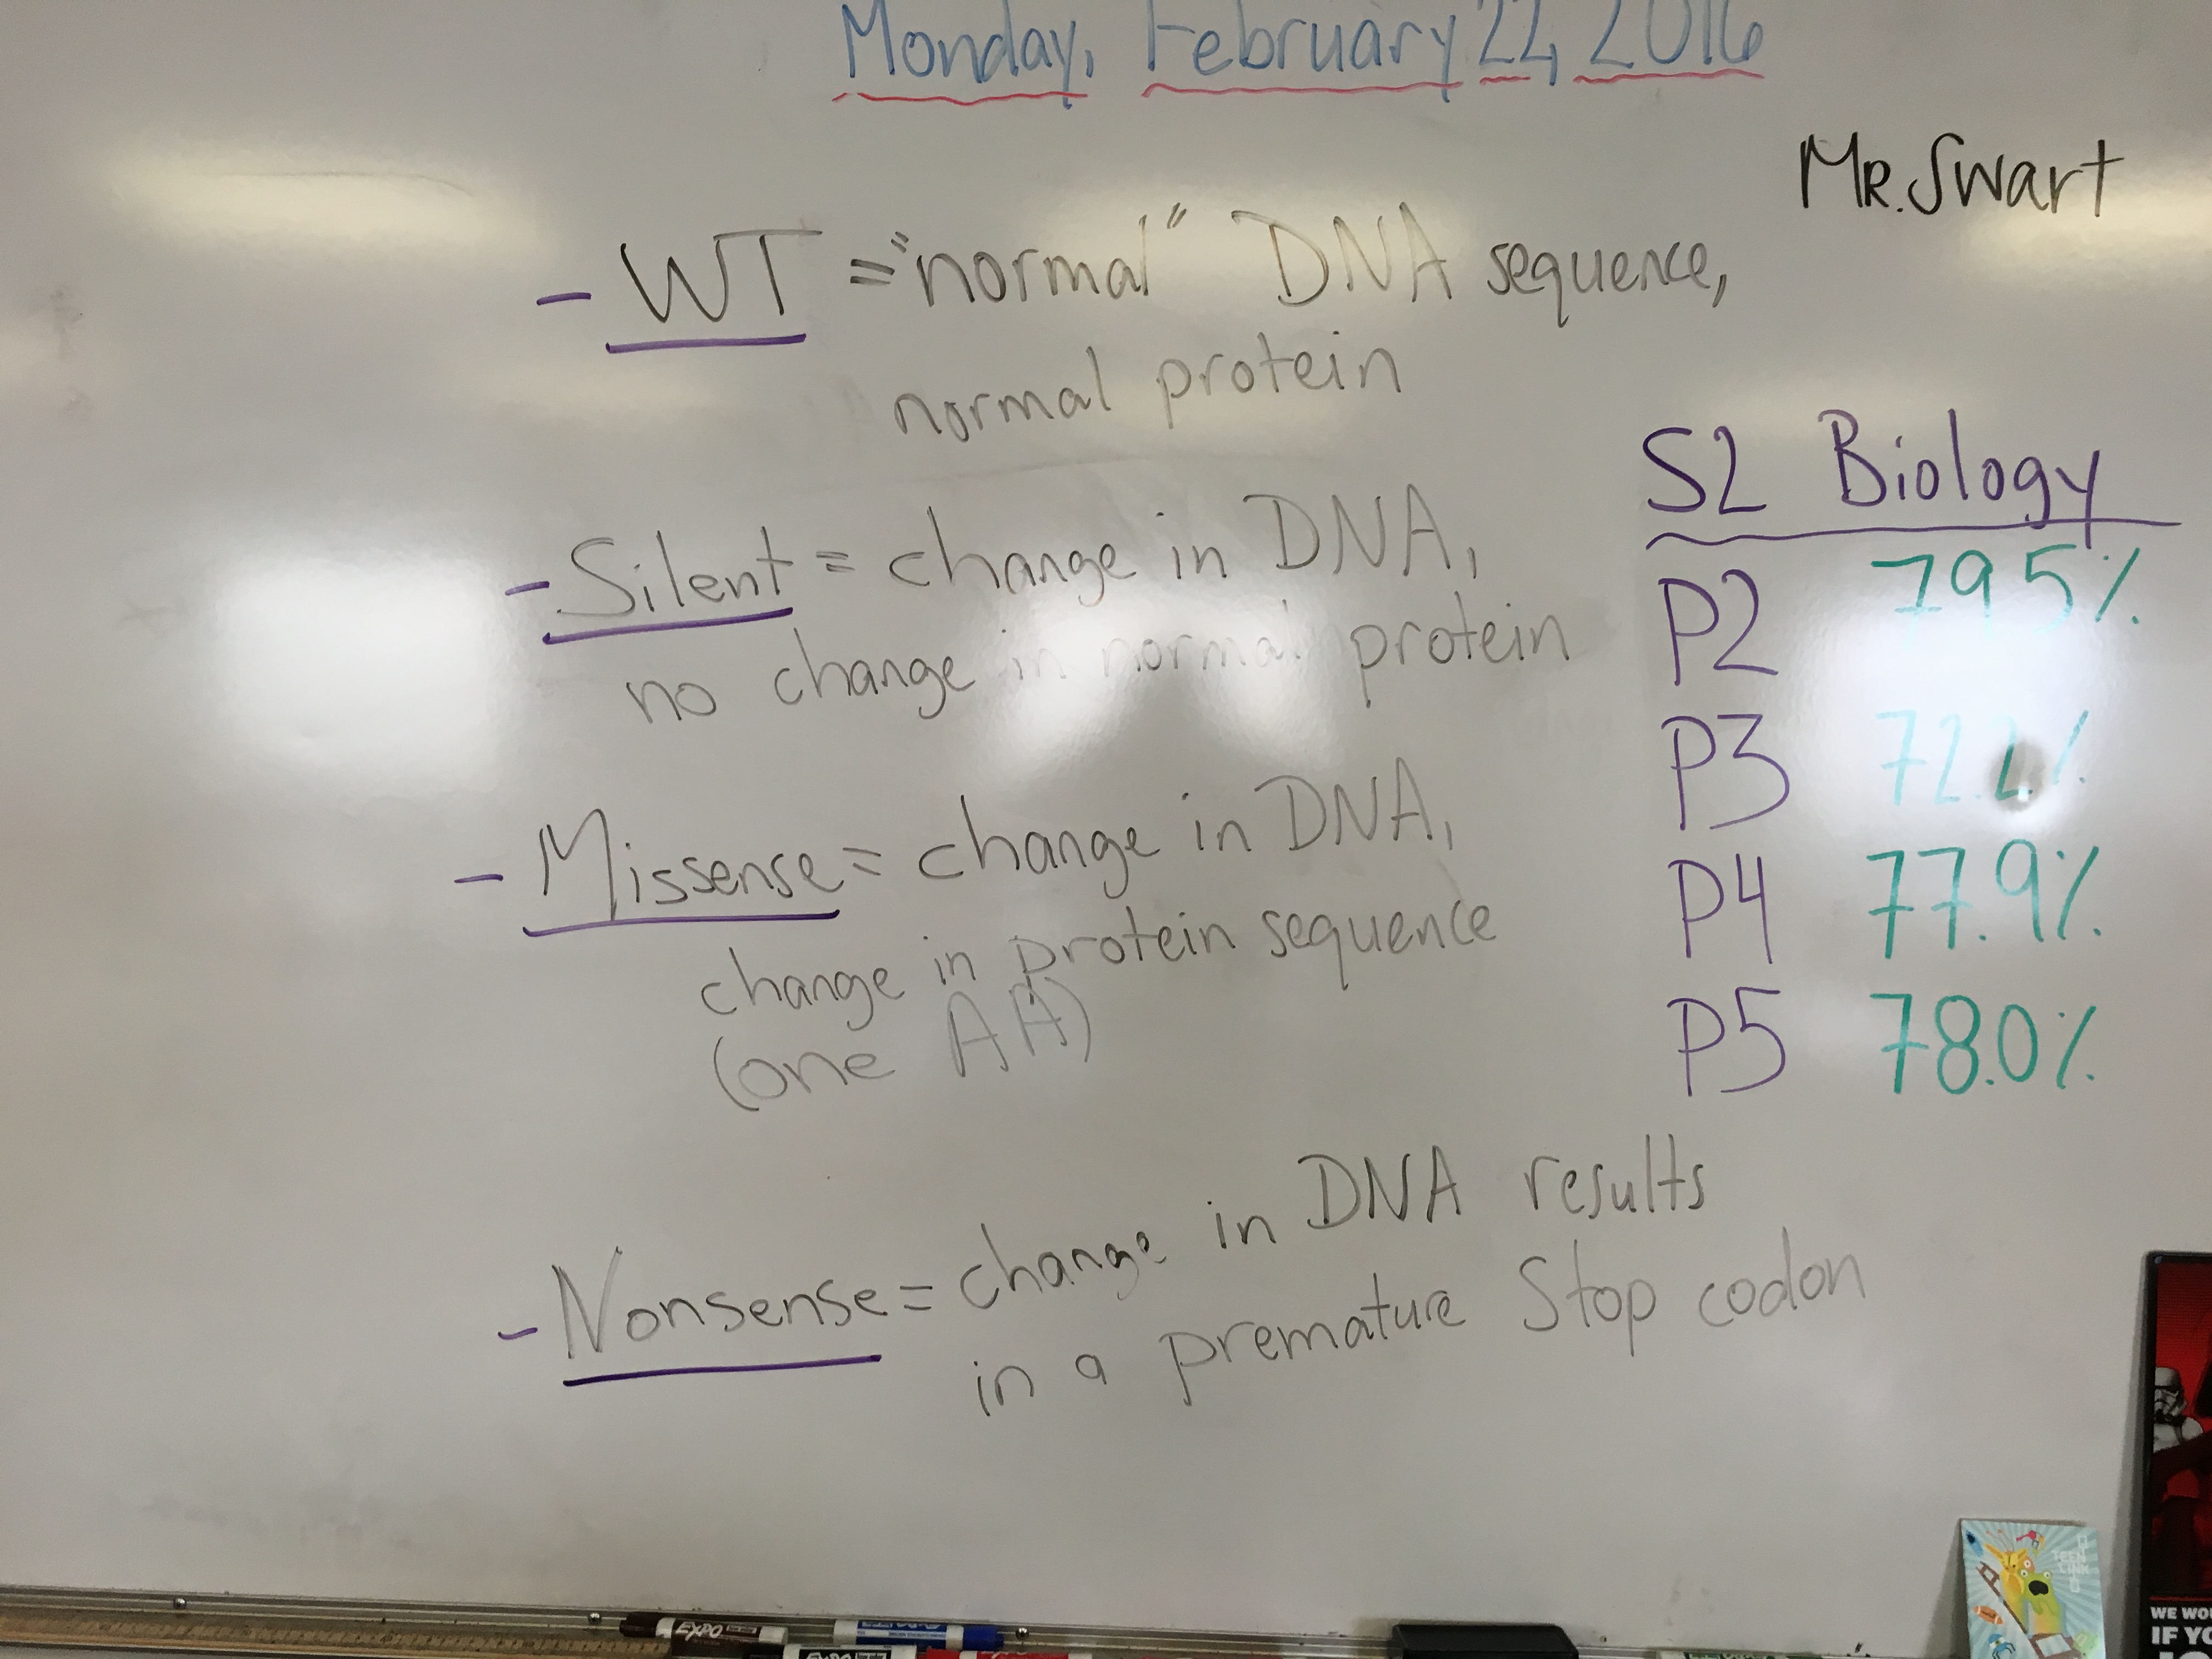 Monday, February 22, 2016
Mr. Swart
- WT = "normal" DNA sequence,
normal protein
- Silent = change in DNA,
no change in normal protein
- Missense = change in DNA,
change in protein sequence
(one AA)
- Nonsense = change in DNA results
in a premature Stop codon
S2 Biology
P2 79.5%
P3 72.2%
P4 77.9%
P5 78.0%
EXPO
EXPO
TEEN
LINK
WE WOU
IF YO